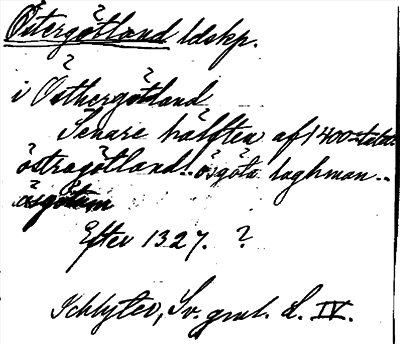 Östergötland ldskp.
i Östhergötland
Senare hälften af 1400-talet
östragötland.. ösgöta laghman..
ösgötom
Efter 1327. ?
Schlyter, Sv. gml. L. IV.